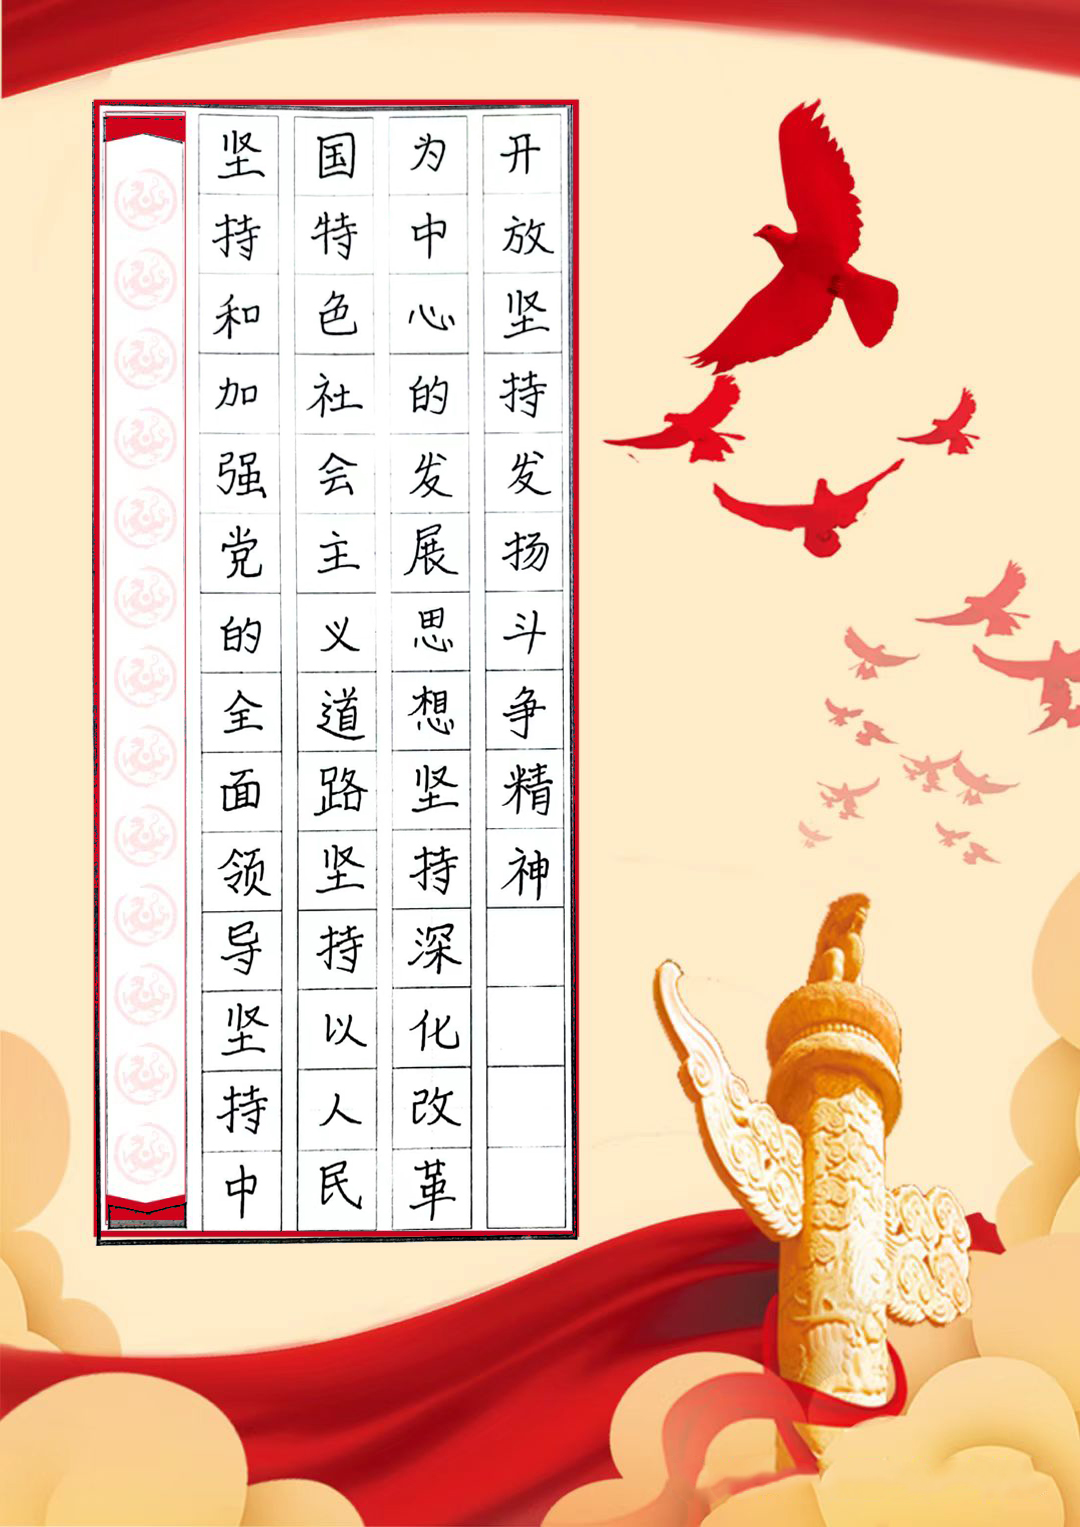 坚持和加强党的全面领导坚持中
国特色社会主义道路坚持以人民
为中心的发展思想坚持深化改革
开放坚持发扬斗争精神